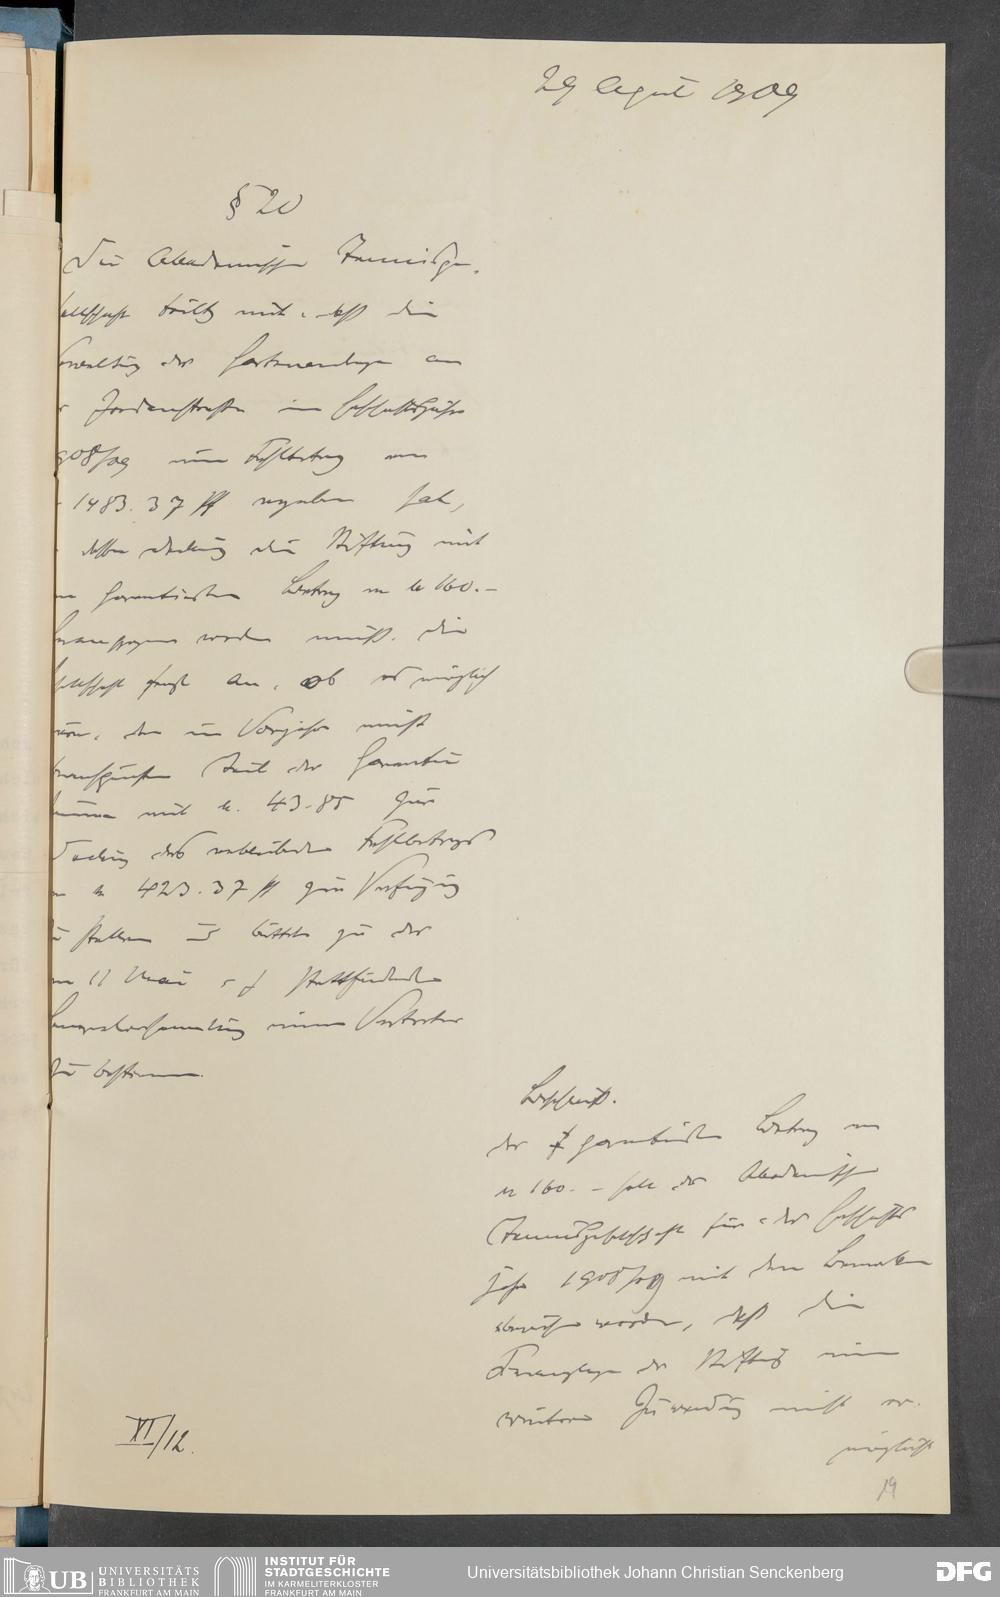 29 August 1909
§ 20
Die Akademische Tennisge-
sellschaft teilt mit, daß die
Verwaltung der Gartenanlage an
der Jordanstraße im Geschäftsjahre
1908/09 einen Fehlbetrag von
1483.37 Pf ergeben hat,
dessen Deckung die Stiftung mit
garantierten Betrag von M 160.-
herangezogen werden muß. Die
Gesellschaft fragt an, ob es möglich
wäre, den im Vorjahre nicht
beanspruchten Teil der Garantie
summe mit M. 43.85 zur
Deckung des verbleibenden Fehlbetrags
von M 423.37 Pf zur Verfügung
zu stellen und bittet zu der
am 11 Mai stattfindenden
Generalversammlung einen Vertreter
zu bestimmen.
Beschluß.
Der garantierte Betrag von
M 160.- soll der Akademischen
Tennisgesellschaft für das Geschäfts
jahr 1908/09 mit dem Bemerken
überwiesen werden, daß die
Finanzlage der Stiftung eine
weitere Zuwendung nicht er-
möglicht
XI/12.
19
UB UNIVERSITÄTS
BIBLIOTHEK
FRANKFURT AM MAIN
INSTITUT FÜR
STADTGESCHICHTE
IM KARMELITERKLOSTER
FRANKFURT AM MAIN
Universitätsbibliothek Johann Christian Senckenberg
DFG